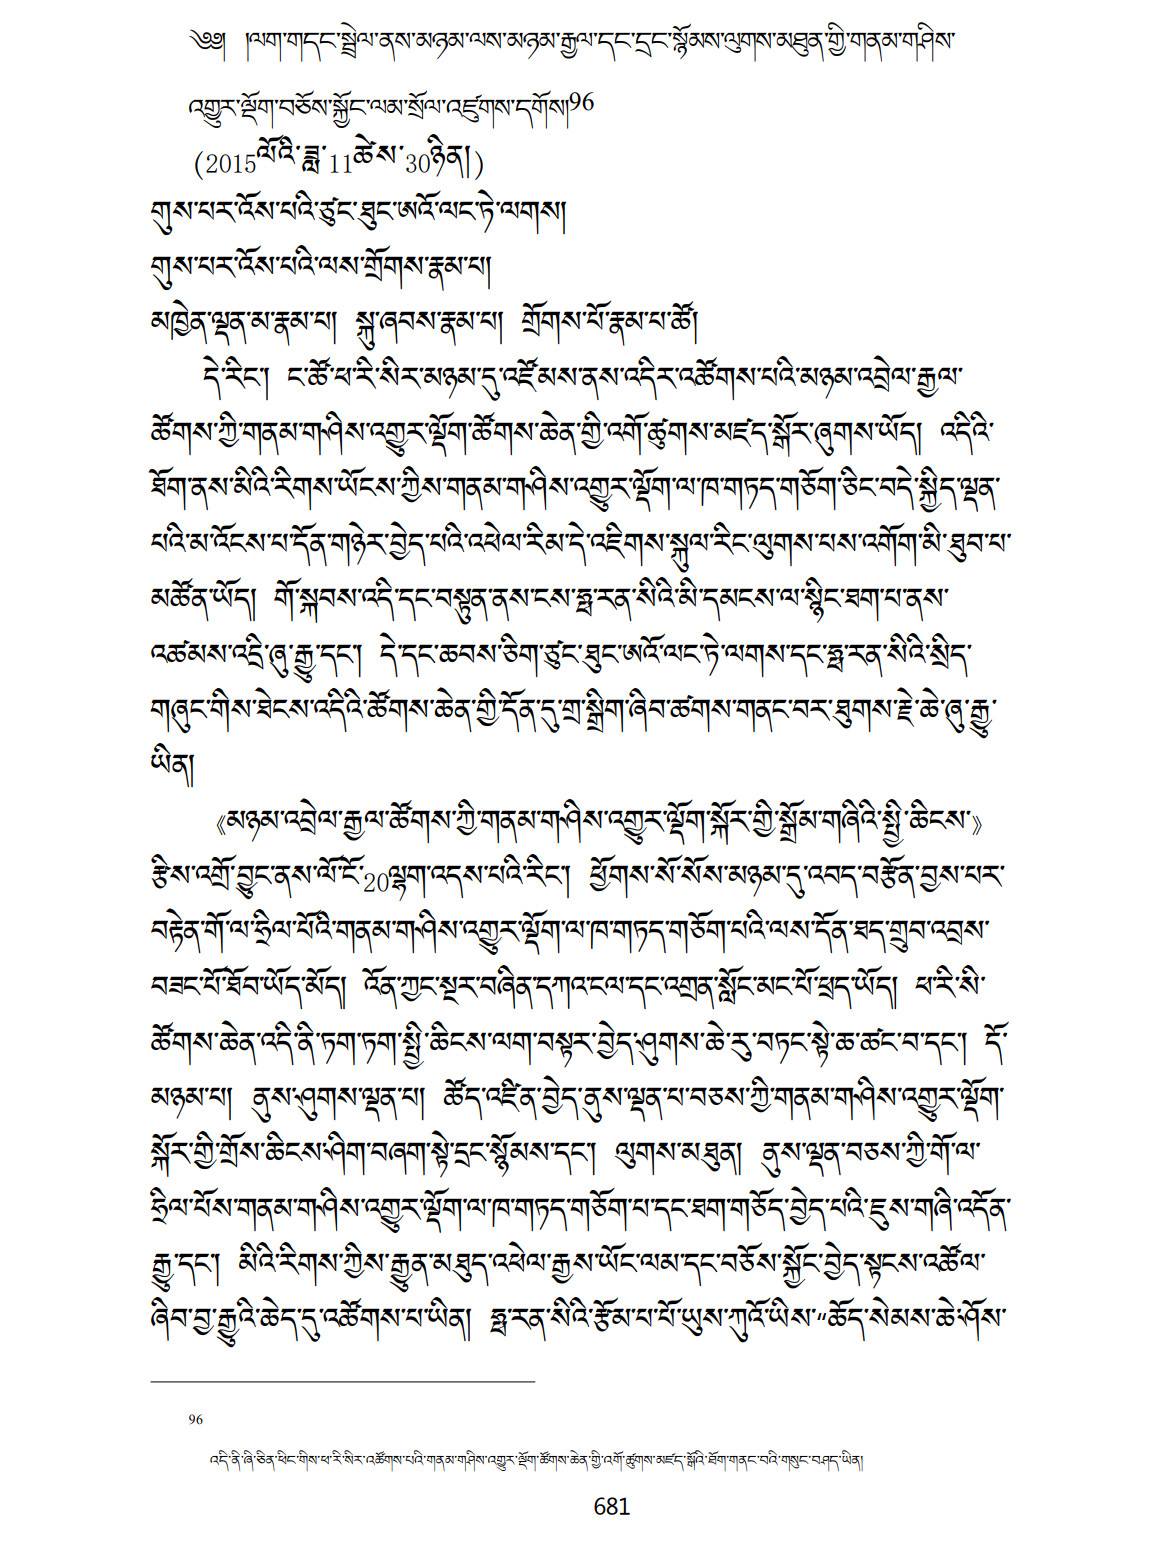 ༄༅། །ལག་གདང་སྦྲེལ་ནས་མཉམ་ལས་མཉམ་རྒྱལ་དང་དྲང་སྙོམས་ལུགས་མཐུན་གྱི་གནམ་གཤིས་
འགྱུར་ལྡོག་བཅོས་སྐྱོང་ལམ་སྲོལ་འཛུགས་དགོས།96
(2015ལོའི་ཟླ་11ཚེས་30ཉིན།)
གུས་པར་འོས་པའི་ཙུང་ཐུང་ཨའོ་ལང་ཏེ་ལགས།
གུས་པར་འོས་པའི་ལས་གྲོགས་རྣམ་པ།
མཁྱེན་ལྡན་མ་རྣམ་པ། སྐུ་ཞབས་རྣམ་པ། གྲོགས་པོ་རྣམ་པ་ཚོ།
དེ་རིང་། ང་ཚོ་ཕ་རི་སིར་མཉམ་དུ་འཛོམས་ནས་འདིར་འཚོགས་པའི་མཉམ་འབྲེལ་རྒྱལ་
ཚོགས་ཀྱི་གནམ་གཤིས་འགྱུར་ལྡོག་ཚོགས་ཆེན་གྱི་འགོ་ཚུགས་མཛད་སྒོར་ཞུགས་ཡོད། འདིའི་
ཐོག་ནས་མིའི་རིགས་ཡོངས་ཀྱིས་གནམ་གཤིས་འགྱུར་ལྡོག་ལ་ཁ་གཏད་གཅོག་ཅིང་བདེ་སྐྱིད་ལྡན་
པའི་མ་འོངས་པ་དོན་གཉེར་བྱེད་པའི་འཕེལ་རིམ་དེ་འཇིགས་སྐུལ་རིང་ལུགས་པས་འགོག་མི་ཐུབ་པ་
མཚོན་ཡོད། གོ་སྐབས་འདི་དང་བསྟུན་ནས་ངས་ཧྥ་རན་སིའི་མི་དམངས་ལ་སྙིང་ཐག་པ་ནས་
འཚམས་འདྲི་ཞུ་རྒྱུ་དང་། དེ་དང་ཆབས་ཅིག་ཙུང་ཐུང་ཨའོ་ལང་ཏེ་ལགས་དང་ཧྥ་རན་སིའི་སྲིད་
གཞུང་གིས་ཐེངས་འདིའི་ཚོགས་ཆེན་གྱི་དོན་དུ་གྲ་སྒྲིག་ཞིབ་ཚགས་གནང་བར་ཐུགས་རྗེ་ཆེ་ཞུ་རྒྱུ་
ཡིན།
《མཉམ་འབྲེལ་རྒྱལ་ཚོགས་ཀྱི་གནམ་གཤིས་འགྱུར་ལྡོག་སྐོར་གྱི་སྒྲོམ་གཞིའི་སྤྱི་ཆིངས་》
རྩིས་འགྲོ་བྱུང་ནས་ལོ་ངོ་20ལྷག་འདས་པའི་རིང་། ཕྱོགས་སོ་སོས་མཉམ་དུ་འབད་བརྩོན་བྱས་པར་
བརྟེན་གོ་ལ་ཧྲིལ་པོའི་གནམ་གཤིས་འགྱུར་ལྡོག་ལ་ཁ་གཏད་གཅོག་པའི་ལས་དོན་ཐད་གྲུབ་འབྲས་
བཟང་པོ་ཐོབ་ཡོད་མོད། འོན་ཀྱང་སྔར་བཞིན་དཀའ་ངལ་དང་འགྲན་སློང་མང་པོ་ཕྲད་ཡོད། ཕ་རི་སི་
ཚོགས་ཆེན་འདི་ནི་ཏག་ཏག་སྤྱི་ཆིངས་ལག་བསྟར་བྱེད་ཤུགས་ཆེ་རུ་བཏང་སྟེ་ཆ་ཚང་བ་དང་། དོ་
མཉམ་པ། ནུས་ཤུགས་ལྡན་པ། ཚོད་འཛིན་བྱེད་ནུས་ལྡན་པ་བཅས་ཀྱི་གནམ་གཤིས་འགྱུར་ལྡོག་
སྐོར་གྱི་གྲོས་ཆིངས་ཤིག་བཞག་སྟེ་དྲང་སྙོམས་དང་། ལུགས་མཐུན། ནུས་ལྡན་བཅས་ཀྱི་གོ་ལ་
ཧྲིལ་པོས་གནམ་གཤིས་འགྱུར་ལྡོག་ལ་ཁ་གཏད་གཅོག་པ་དང་ཐག་གཅོད་བྱེད་པའི་ཇུས་གཞི་འདོན་
རྒྱུ་དང་། མིའི་རིགས་ཀྱིས་རྒྱུན་མཐུད་འཕེལ་རྒྱས་ཡོང་ལམ་དང་བཅོས་སྐྱོང་བྱེད་སྟངས་འཚོལ་
ཞིབ་བྱ་རྒྱུའི་ཆེད་དུ་འཚོགས་པ་ཡིན། ཧྥ་རན་སིའི་རྩོམ་པ་པོ་ཡུས་ཀུའོ་ཡིས་“ཆོད་སེམས་ཆེ་ཤོས་
96
འདི་ནི་ཞི་ཅིན་ཕིང་གིས་ཕ་རི་སིར་འཚོགས་པའི་གནམ་གཤིས་འགྱུར་ལྡོག་ཚོགས་ཆེན་གྱི་འགོ་ཚུགས་མཛད་སྒོའི་ཐོག་གནང་བའི་གསུང་བཤད་ཡིན།
681